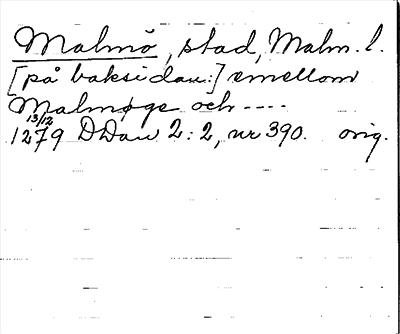 Malmö, stad, Malm. l.
[på baksidan:] emellom
Malmøge och ----
13/12
1279 DDan 2:2, nr 390. orig.